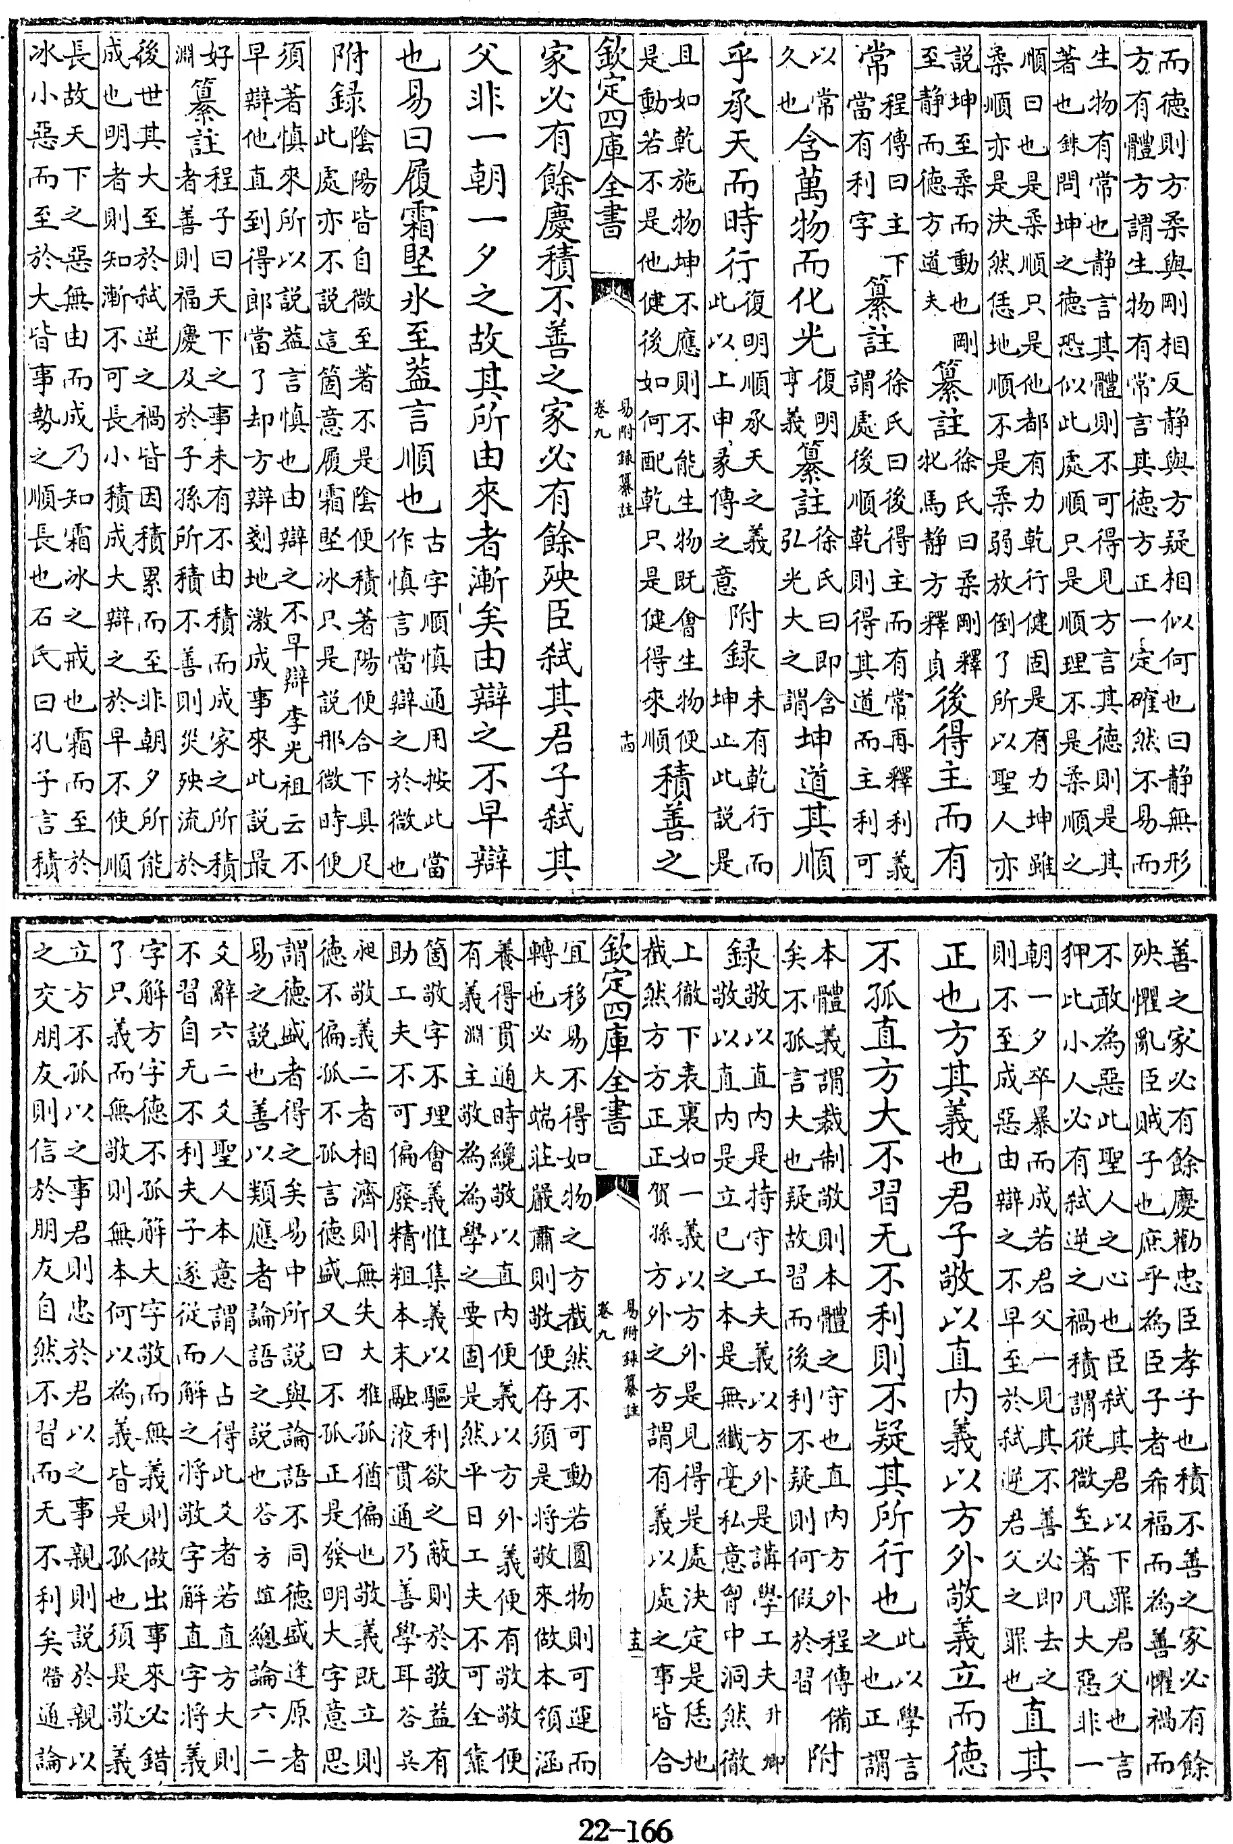 而德則方柔與剛相反静與方疑相似何也曰静無形
方有體方謂生物有常言其德方正一定確然不易而
生物有常也静言其體則不可得見方言其德則是其
著也銖問坤之德恐似此處順只是順理不是柔順之
順曰也是柔順只是他都有力乾行健固是有力坤雖
柔順亦是決然恁地順不是柔弱放倒了所以聖人亦
説坤至柔而動也剛至静而德方道夫 纂註 徐氏曰柔剛釋牝馬静方釋貞 後得主而有
常 程傳曰主下當有利字 纂註 徐氏曰後得主而有常再釋利義謂處後順乾則得其道而主利可
以常久也 含萬物而化光 復明亨義 纂註 徐氏曰即含弘光大之謂 坤道其順
乎承天而時行 復明順承天之義此以上申彖傳之意 附録 未有乾行而坤止此説是
且如乾施物坤不應則不能生物既會生物便是動若不是他健後如何配乾只是健得來順 積善之
欽定四庫全書 易附録纂註 卷九 十四
家必有餘慶積不善之家必有餘殃臣弑其君子弑其
父非一朝一夕之故其所由來者漸矣由辯之不早辯
也易曰履霜堅氷至葢言順也 古字順慎通用按此當作慎言當辯之於微也
附録 陰陽皆自微至著不是陰便積著陽便合下具足此處亦不説這箇意履霜堅冰只是説那微時便
須著慎來所以説葢言慎也由辯之不早辯李光祖云不
早辯他直到得郎當了却方辯剗地激成事來此説最
好淵 纂註 程子曰天下之事未有不由積而成家之所積者善則福慶及於子孫所積不善則災殃流於
後世其大至於弑逆之禍皆因積累而至非朝夕所能
成也明者則知漸不可長小積成大辯之於早不使順
長故天下之惡無由而成乃知霜冰之戒也霜而至於
冰小惡而至於大皆事勢之順長也石氏曰孔子言積
善之家必有餘慶勸忠臣孝子也積不善之家必有餘
殃懼亂臣賊子也庶乎為臣子者希福而為善懼禍而
不敢為惡此聖人之心也臣弑其君以下罪君父也言
狎此小人必有弑逆之禍積謂從微至著凡大惡非一
朝一夕卒暴而成若君父一見其不善必即去之則不至成惡由辯之不早至於弑逆君父之罪也 直其
正也方其義也君子敬以直內義以方外敬義立而德
不孤直方大不習无不利則不疑其所行也 此以學言之也正謂
本體義謂裁制敬則本體之守也直内方外程傳備矣不孤言大也疑故習而後利不疑則何假於習 附
録 敬以直内是持守工夫義以方外是講學工夫升卿敬以直内是立己之本是無纖毫私意胷中洞然徹
上徹下表裏如一義以方外是見得是處決定是恁地
截然方方正正賀孫方外之方謂有義以處之事皆合
欽定四庫全書 易附録纂註 卷九 十五
宜移易不得如物之方截然不可動若圓物則可運而
轉也必大端莊嚴肅則敬便存須是將敬來做本領涵
養得貫通時纔敬以直内便義以方外義便有敬敬便
有義淵主敬為為學之要固是然平日工夫不可全靠
箇敬字不理會義惟集義以驅利欲之蔽則於敬益有
助工夫不可偏廢精粗本末融液貫通乃善學耳答吳
昶敬義二者相濟則無失大雅孤猶偏也敬義既立則
德不偏孤不孤言德盛又曰不孤正是發明大字意思
謂德盛者得之矣易中所説與論語不同德盛逢原者
易之説也善以類應者論語之説也答方誼總論六二
爻辭六二爻聖人本意謂人占得此爻者若直方大則
不習自无不利夫子遂從而解之將敬字解直字將義
字解方字德不孤解大字敬而無義則做出事來必錯
了只義而無敬則無本何以為義皆是孤也須是敬義
立方不孤以之事君則忠於君以之事親則説於親以
之交朋友則信於朋友自然不習而无不利矣㽦通論
22-166